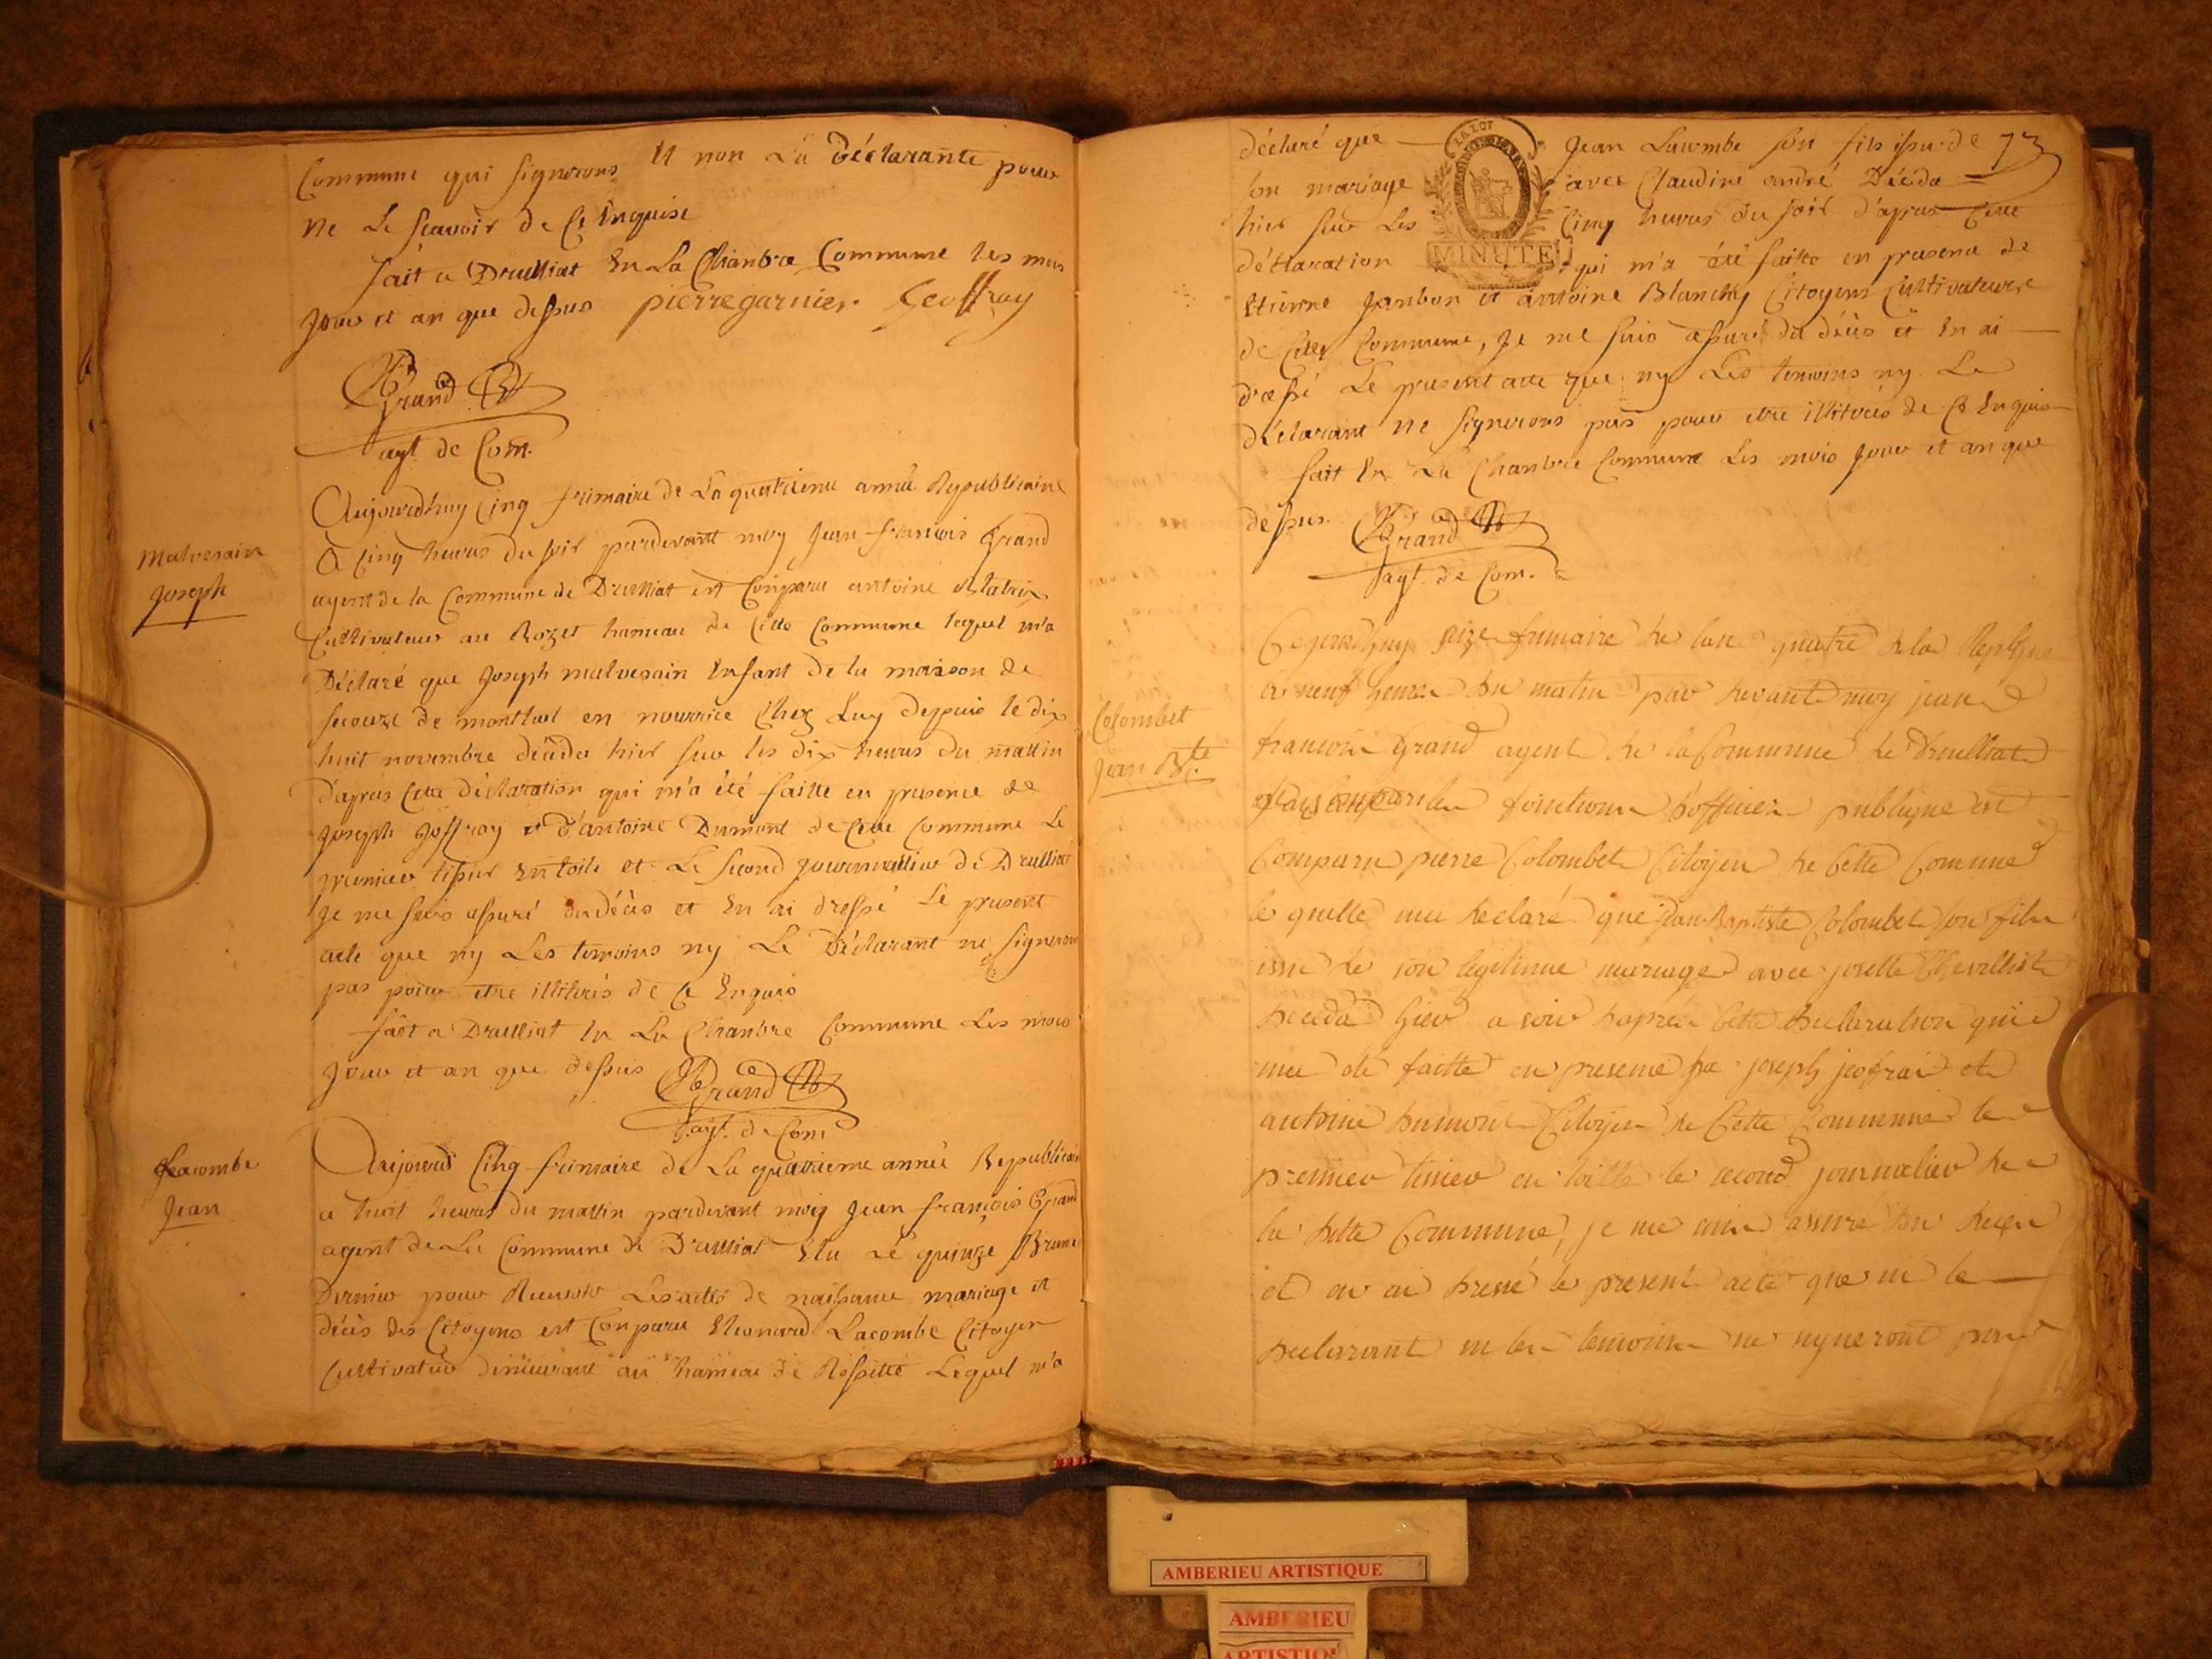 Commune qui signerons Et non La Déclarante pour
Ne Le scavoir de Ce Enquise
fait a Druilliat En La Chambre Commune les mois
Jour et an que dessus pierre garnier Geoffray
Grand
agt. de Com.
Malvesain
Joseph
Aujourd'huy Cinq frimaire de La quatrieme année Republicaine
a Cinq heures du soir pardevant moy Jean francois Grand
agent de la Commune de Druilliat est Comparu antoine
Cultivateur au Rozet hameau de Cette Commune lequel m'a
Déclaré que Joseph malvesain Enfant de la maison de
secours de montluel en nourrice Chez Luy depuis le dix
huit novembre décéda hier sur les dix heures du mattin
d'apres Cette déclaration qui m'a été faitte en presence de
Joseph Joffray et d'antoine Dumont de Cette Commune Le
premier tisseur En toile et Le second journallier de Druilliat
Je me suis assuré du décès et En ai dressé Le present
acte que ny Les temoins ny Le Déclarant ne signerons
pas pour etre illiterés de Ce Enquis
fait a Druilliat En La Chambre Commune Les mois
Jour et an que dessus Grand
agt. de Com
Lacombe
Jean
Aujourd Cinq frimaire de La quatrieme année Republicaine
a huit heures du mattin pardevant moy Jean françois Grand
agent de La Commune de Druilliat Elu Le quinze Brume
Dernier pour Recevoir Les actes de naissance mariage et
décès des Citoyens est Comparu Léonard Lacombe Citoyen
Cultivateur demeurant au hameau de Lequel m'a
déclaré que — Jean Lacombe son fils issu de 73
son mariage avec Claudine andré Décéda
hier sur Les Cinq heures du soir d'apres Cette
déclaration qui m'a été faitte en presence de
MINUTE
LA LOI
Etienne Janbon et antoine Blanchy Citoyens Cultivateurs
de Cette Commune, Je me suis assuré du décès et En ai
dressé Le present acte que ny Les temoins ny Le
déclarant ne signerons pas pour etre illiterés de Ce Enquis
fait En La Chambre Commune Les mois Jour et an que
dessus. Grand
agt. de Com.
Colombet
Jean Bte
seize frimaire de lan quatre de la
a neuf heures du matin par devant moy jean
francois Grand agent de la Commune de Druilliat
fonctions d'officier publique est
Comparu pierre Colombet Citoyen de Cette Comune
le quelle ma declaré que Jean Baptiste Colombet son fils
issu de son legitime mariage avec josette
deceda hier a soir dapres Cette declaration qui
ma eté faitte en presence de joseph jeofrai et
antoine dumont Citoyen de Cette Commune le
premier tisieur en toille le second journalier de
la ditte Commune, je me suis assuré du
et en ai dressé le present acte que ni le
declarant ni les temoins ne signeront pour
AMBERIEU ARTISTIQUE
AMBERIEU
ARTISTIQU